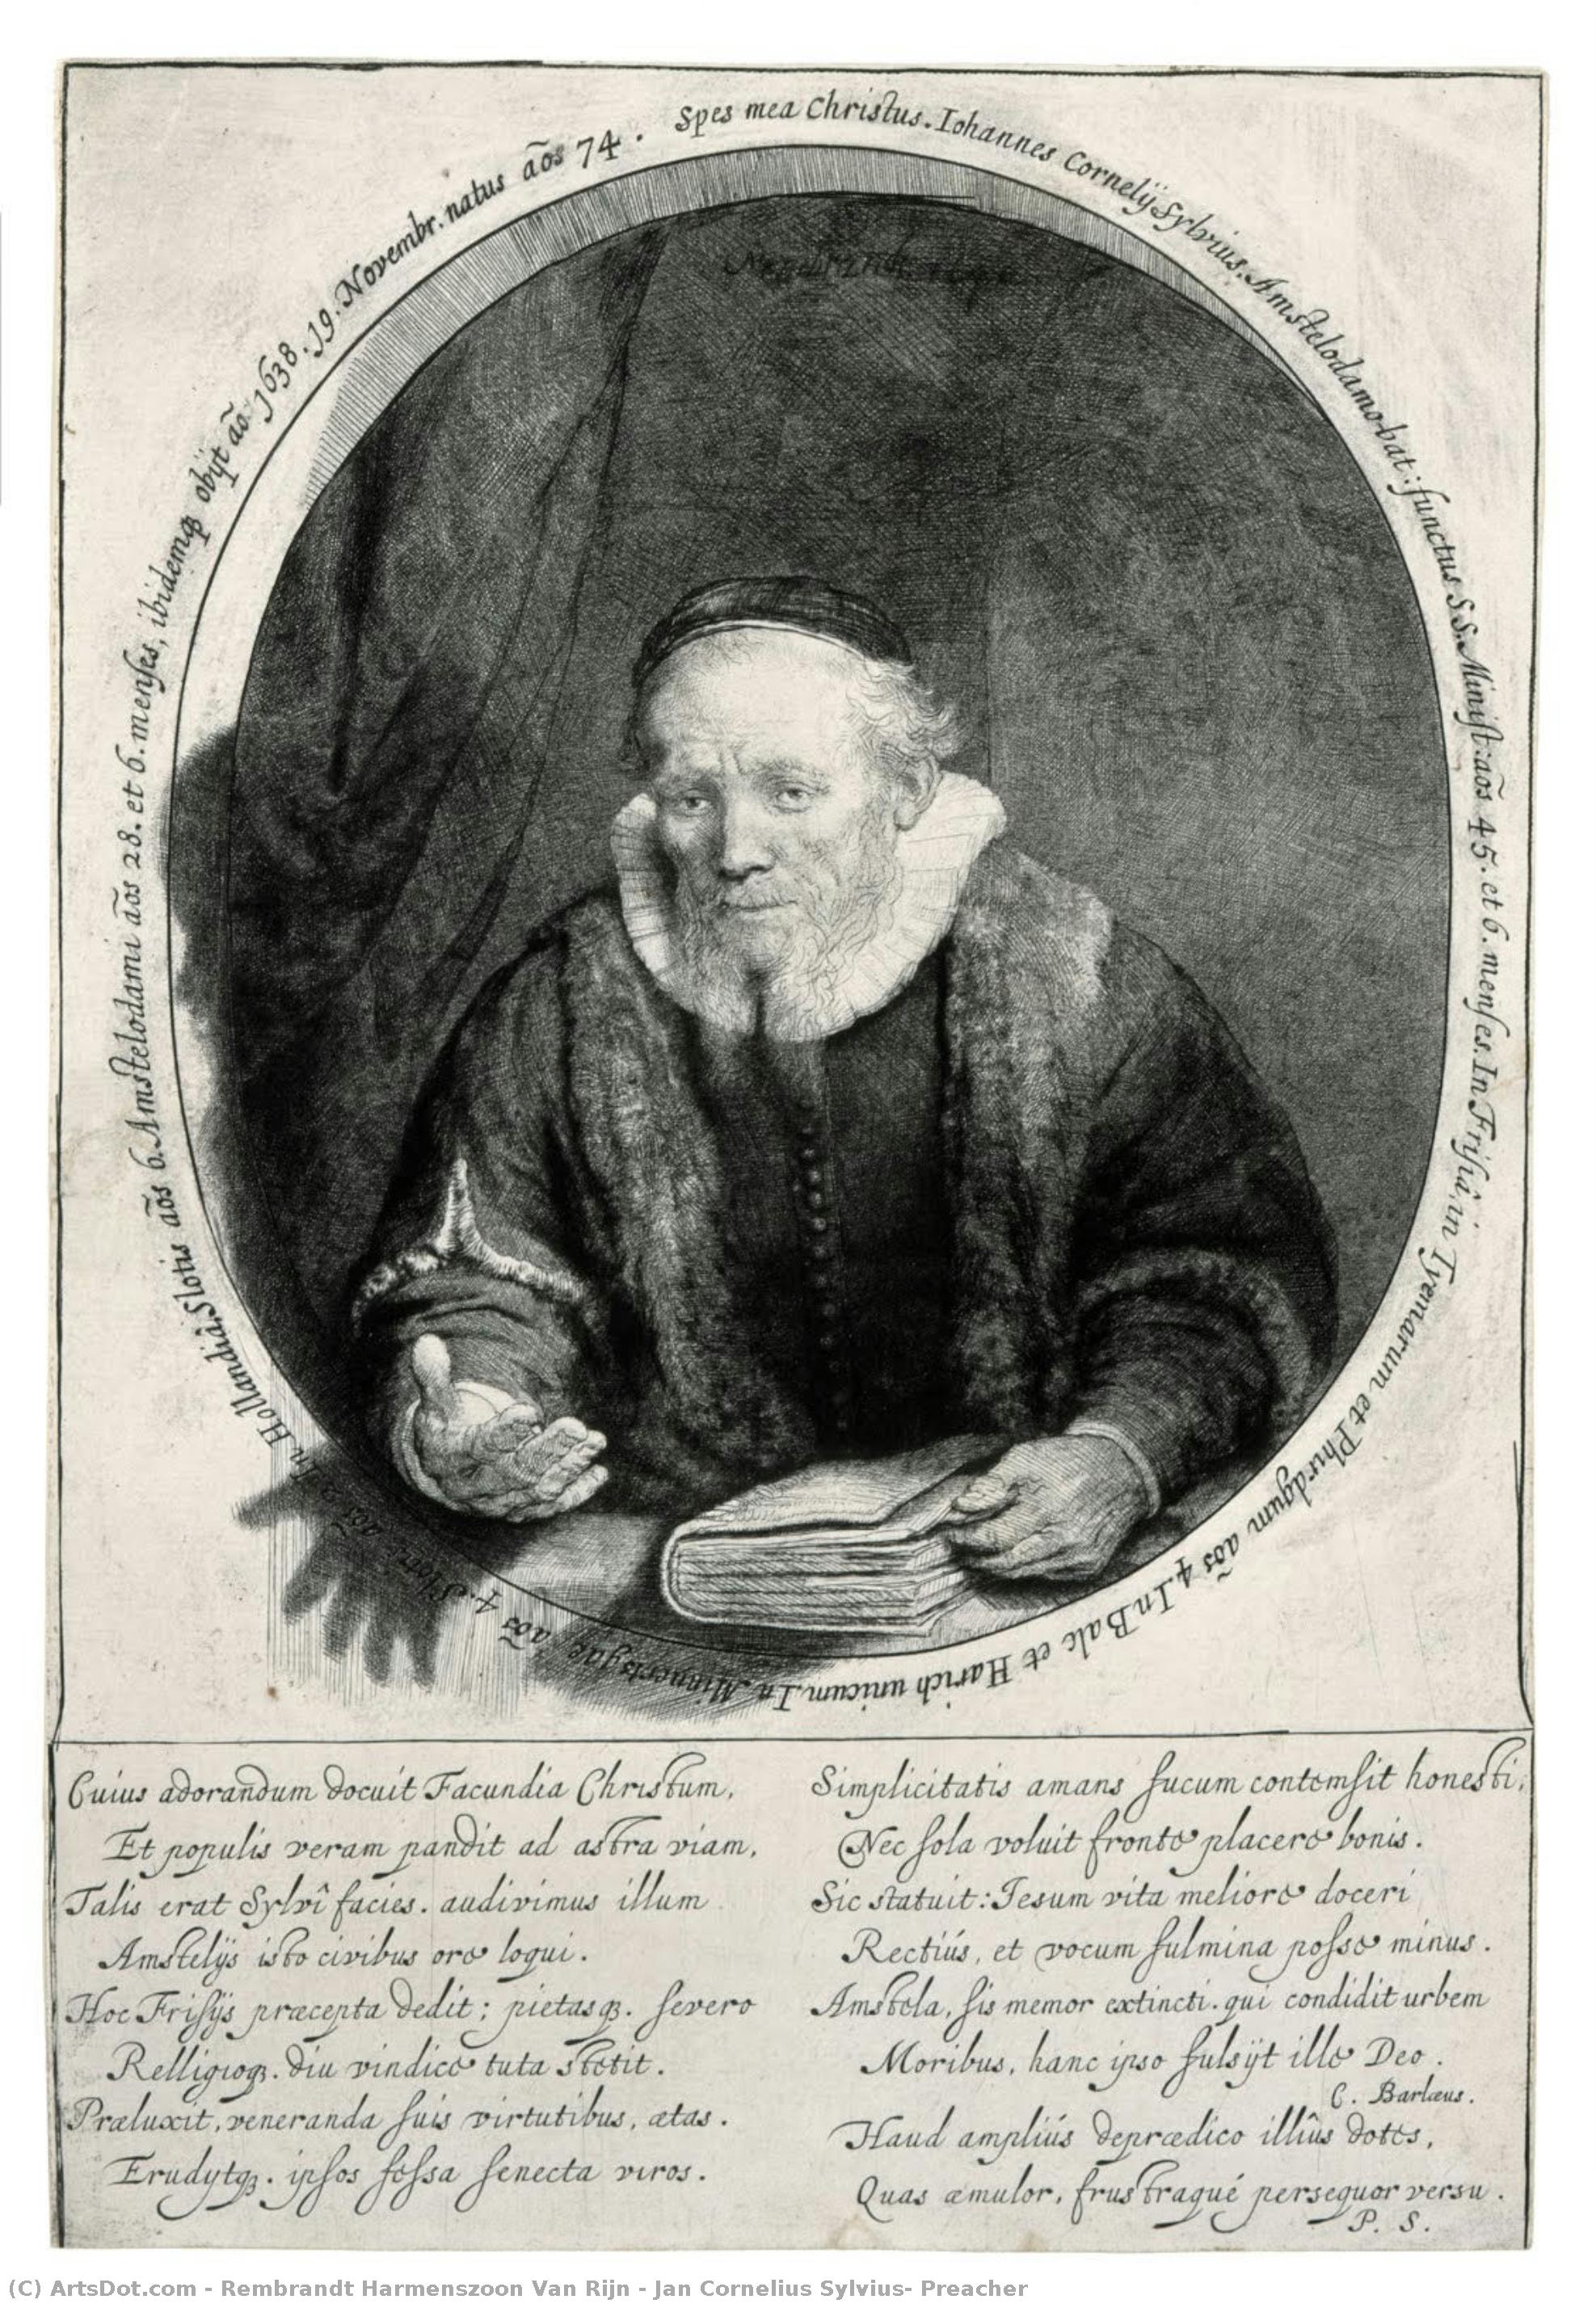 Spes mea Christus. Iohannes Cornelÿ Sylvius. Amstelodamo-bat: functus S.S. Minist: aõs 45. et 6. menses. In Frisiâ, in Tyemarum et Phirdgum aõs 4. In Balc et Harich unicum. In Minnertsgae aõs 4. Slotis aõs 6. Amstelodami aõs 28. et 6. menses, ibidemqꝫ obÿt aõ. 1638. 19. Novembr. natus aõs 74.
Cuius adorandum docuit Facundia Christum,
Et populis veram pandit ad astra viam,
Talis erat Sylvî facies. audivimus illum
Amstelÿs isto civibus ore loqui.
Hoc Frisÿs præcepta dedit; pietasqꝫ. severo
Relligioqꝫ. diu vindice tuta stetit.
Præluxit, veneranda suis virtutibus, ætas.
Erudytqꝫ. ipsos fessa senecta viros.
Simplicitatis amans fucum contemsit honesti,
Nec sola voluit fronte placere bonis.
Sic statuit: Iesum vita meliore doceri
Rectiús, et vocum fulmina posse minus.
Amstela, sis memor extincti. qui condidit urbem
Moribus, hanc ipso fulsÿt ille Deo.
C. Barlæus.
Haud ampliús deprædico illîus dotes,
Quas æmulor, frustraqué persequor versu.
P. S.
(C) ArtsDot.com - Rembrandt Harmenszoon Van Rijn - Jan Cornelius Sylvius- Preacher